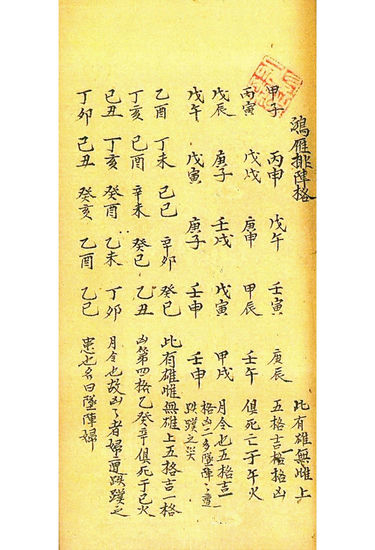 鴻雁排陣格
此有雄無雌上
甲子 丙申 戊午 壬寅 庚辰 五格吉一格凶
丙寅 戊戌 庚申 甲辰 壬午 俱死亡于午火
戊辰 庚子 壬戌 戊寅 甲戌 月令也五格吉一
格凶二名墜陣之遭
戊午 戊寅 庚子 壬申 壬申 跌蹼之災
乙酉 丁未 己巳 辛卯 癸巳 此有雌無雄上五格吉一格
丁亥 己酉 辛未 癸巳 乙丑 凶第四格乙癸辛俱死于巳火
己丑 丁亥 癸酉 乙未 丁卯 月令也故凶之者婦遭跌蹼之
丁卯 己丑 癸亥 乙酉 乙巳 患也名曰墜陣婦